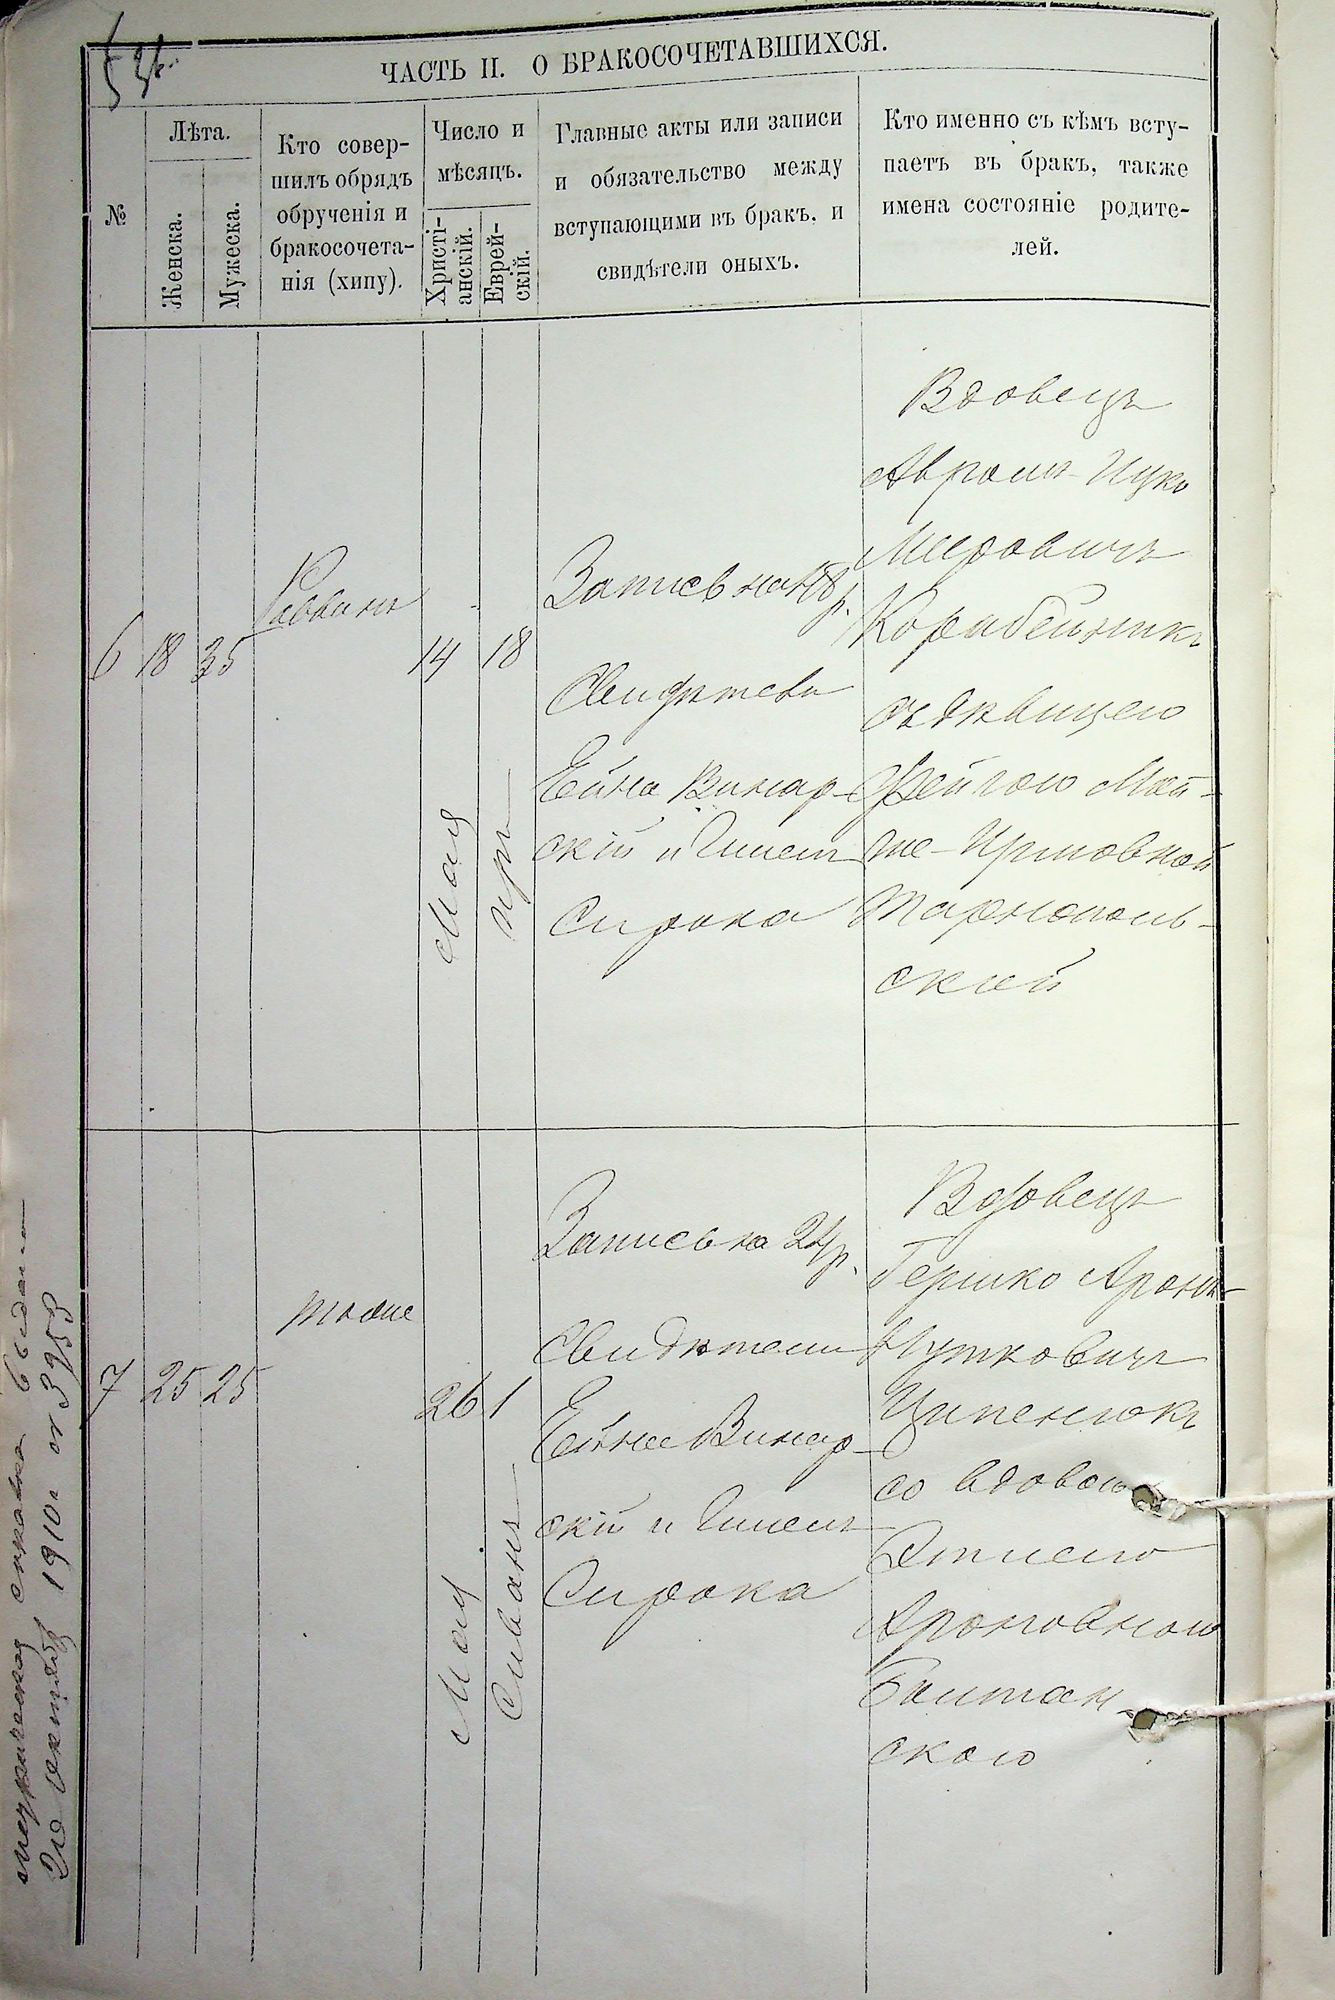 ЧАСТЬ II. О БРАКОСОЧЕТАВШИХСЯ.
№
Лѣта.
Женска.
Мужеска.
Кто совер-
шилъ обрядъ
обрученія и
бракосочета-
нія (хипу).
Число и
мѣсяцъ.
Христі-
анскій.
Еврей-
скій.
Главные акты или записи
и обязательство между
вступающими въ бракъ, и
свидѣтели оныхъ.
Кто именно съ кѣмъ всту-
паетъ въ бракъ, также
имена состояніе родите-
лей.
6
18
35
Раввинъ
14
Мая
18
Иръ
Запись на 48 р.
Свидѣтели
Ейна Винар-
скій и Гилелъ
Сирока
Вдовецъ
Авромъ-Ицко
Мееровичъ
Корабейникъ
съ дѣвицею
Фейгою Мой-
ше-Ицковной
Тарнополь-
ской
7
25
25
тоже
26
Мая
1
Сиванъ
Запись на 24 р.
Свидѣтели
Ейна Винар-
скій и Гилелъ
Сирока
Вдовецъ
Гершко Аронъ-
Ицковичъ
Ципенюкъ
со вдовою
Этлею
Ароновною
Балтан
скою
метрическая справка выдана
1910 г № 3953